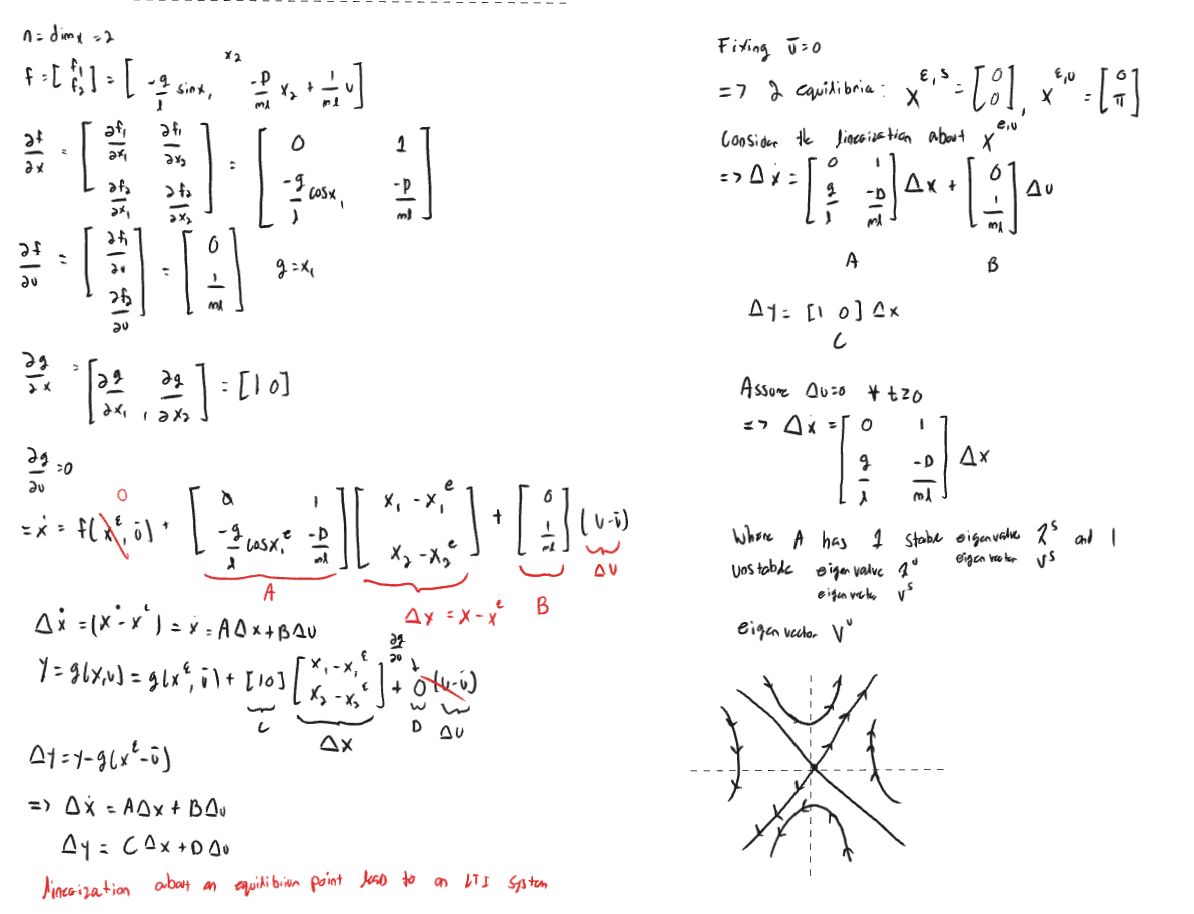 n = dim x = 2
f = [f₁ f₂] = [ x₂ -g/l sin x₁ -D/ml x₂ + 1/ml u ]
∂f/∂x = [ ∂f₁/∂x₁ ∂f₁/∂x₂ ; ∂f₂/∂x₁ ∂f₂/∂x₂ ] = [ 0 1 ; -g/l cosx₁ -D/ml ]
∂f/∂u = [ ∂f₁/∂u ; ∂f₂/∂u ] = [ 0 ; 1/ml ] g = x₁
∂g/∂x = [ ∂g/∂x₁ , ∂g/∂x₂ ] = [1 0]
∂g/∂u = 0
0
= ẋ = f(xᵉ, ū) + [ 0 1 ; -g/l cosx₁ᵉ -D/ml ] [ x₁ - x₁ᵉ ; x₂ - x₂ᵉ ] + [ 0 ; 1/ml ] (u-ū)
A Δx = x - xᵉ B Δu
Δẋ = (ẋ - ẋᵉ) = ẋ = AΔx + BΔu
y = g(x,u) = g(xᵉ, ū) + [1 0] [ x₁ - x₁ᵉ ; x₂ - x₂ᵉ ] + 0 (u-ū)
∂g/∂u ↓
C Δx D Δu
Δy = y - g(xᵉ - ū)
=> Δẋ = AΔx + BΔu
Δy = CΔx + DΔu
linearization about an equilibrium point lead to an LTI system
Fixing ū = 0
=> 2 equilibria: xᵉ,ˢ = [ 0 ; 0 ], xᵉ,ᵘ = [ 0 ; π ]
Consider the linearization about xᵉ,ᵘ
=> Δẋ = [ 0 1 ; g/l -D/ml ] Δx + [ 0 ; 1/ml ] Δu
A B
Δy = [1 0] Δx
C
Assume Δu = 0 ∀ t ≥ 0
=> Δẋ = [ 0 1 ; g/l -D/ml ] Δx
Where A has 1 stable eigenvalue λˢ and 1
unstable eigenvalue λᵘ eigenvector vˢ
eigenvector vˢ
eigenvector vᵘ